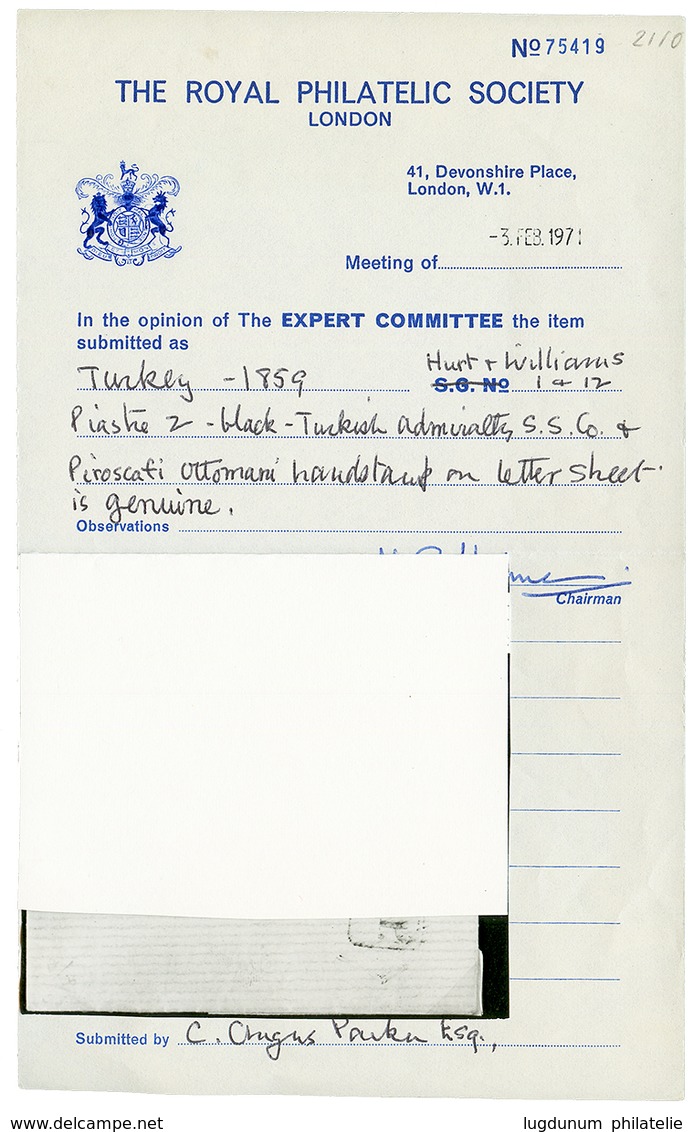 2110
No 75419
THE ROYAL PHILATELIC SOCIETY
LONDON
41, Devonshire Place,
London, W.1.
-3. FEB. 1971
Meeting of
In the opinion of The EXPERT COMMITTEE the item
submitted as
Hurt & Williams
Turkey - 1859 S.G. No 1 & 12
Piastre 2 - black - Turkish Admiralty S.S. Co. &
Piroscafi Ottomani handstamp on letter sheet.
is genuine.
Observations
Chairman
Submitted by C. Angus Parker Esq.,
www.delcampe.net
lugdunum philatelie